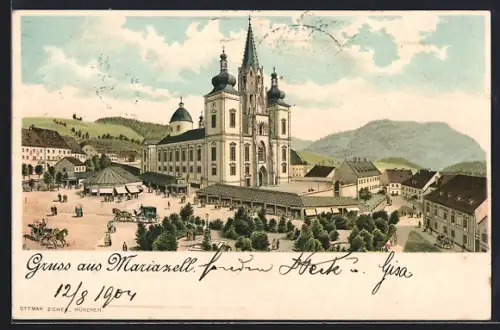 Gruss aus Mariazell. senden Heck u. Gisa
12/8 1904
OTTMAR ZIEHER, MÜNCHEN.